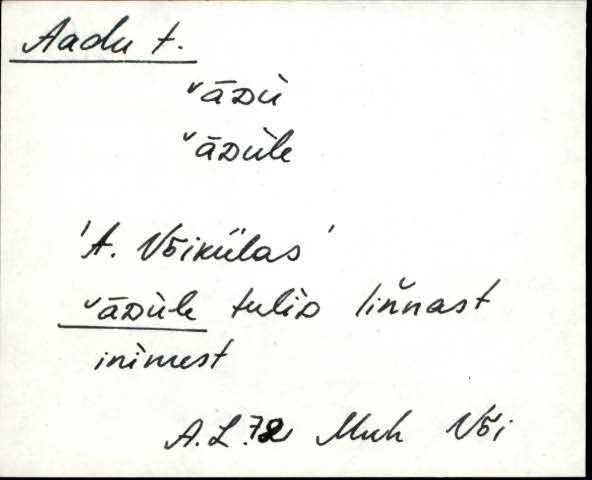 Aadu t.
ˇāᴅù
ˇāᴅùle
'A. Võikülas'
ˇāᴅùle tulìᴅ liňnast
inìmest
A.L.72 Muh Või